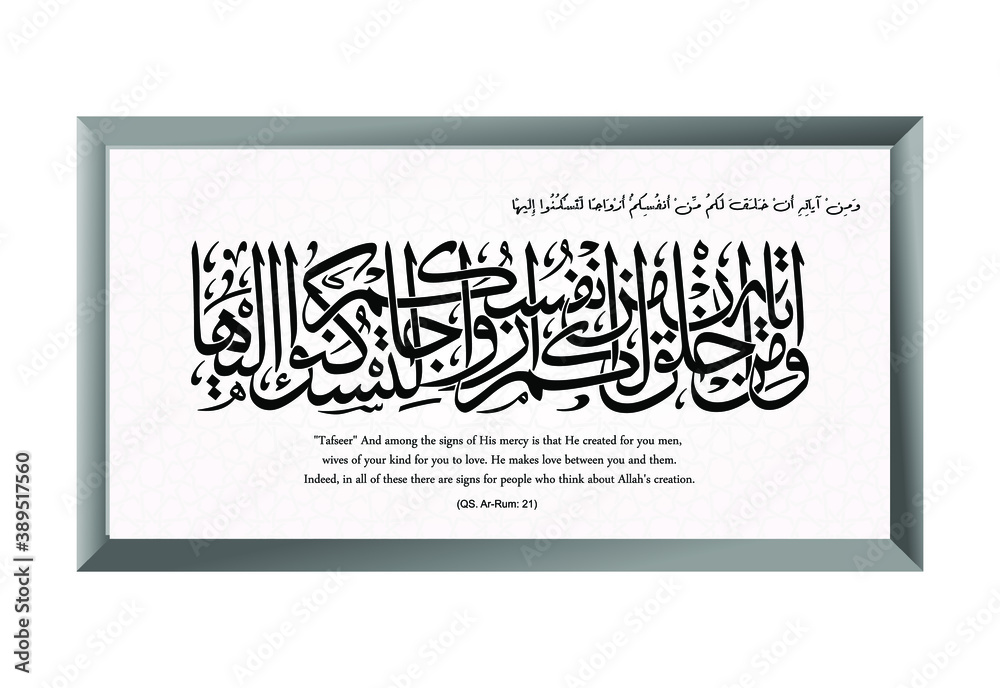 وَمِنْ آيَاتِهِ أَنْ خَلَقَ لَكُمْ مِّنْ أَنفُسِكُمْ أَزْوَاجًا لِّتَسْكُنُوا إِلَيْهَا
ومن اياته ان خلق لكم من انفسكم ازواجا لتسكنوا اليها
"Tafseer" And among the signs of His mercy is that He created for you men,
wives of your kind for you to love. He makes love between you and them.
Indeed, in all of these there are signs for people who think about Allah's creation.
(QS. Ar-Rum: 21)
Adobe Stock | #389517560